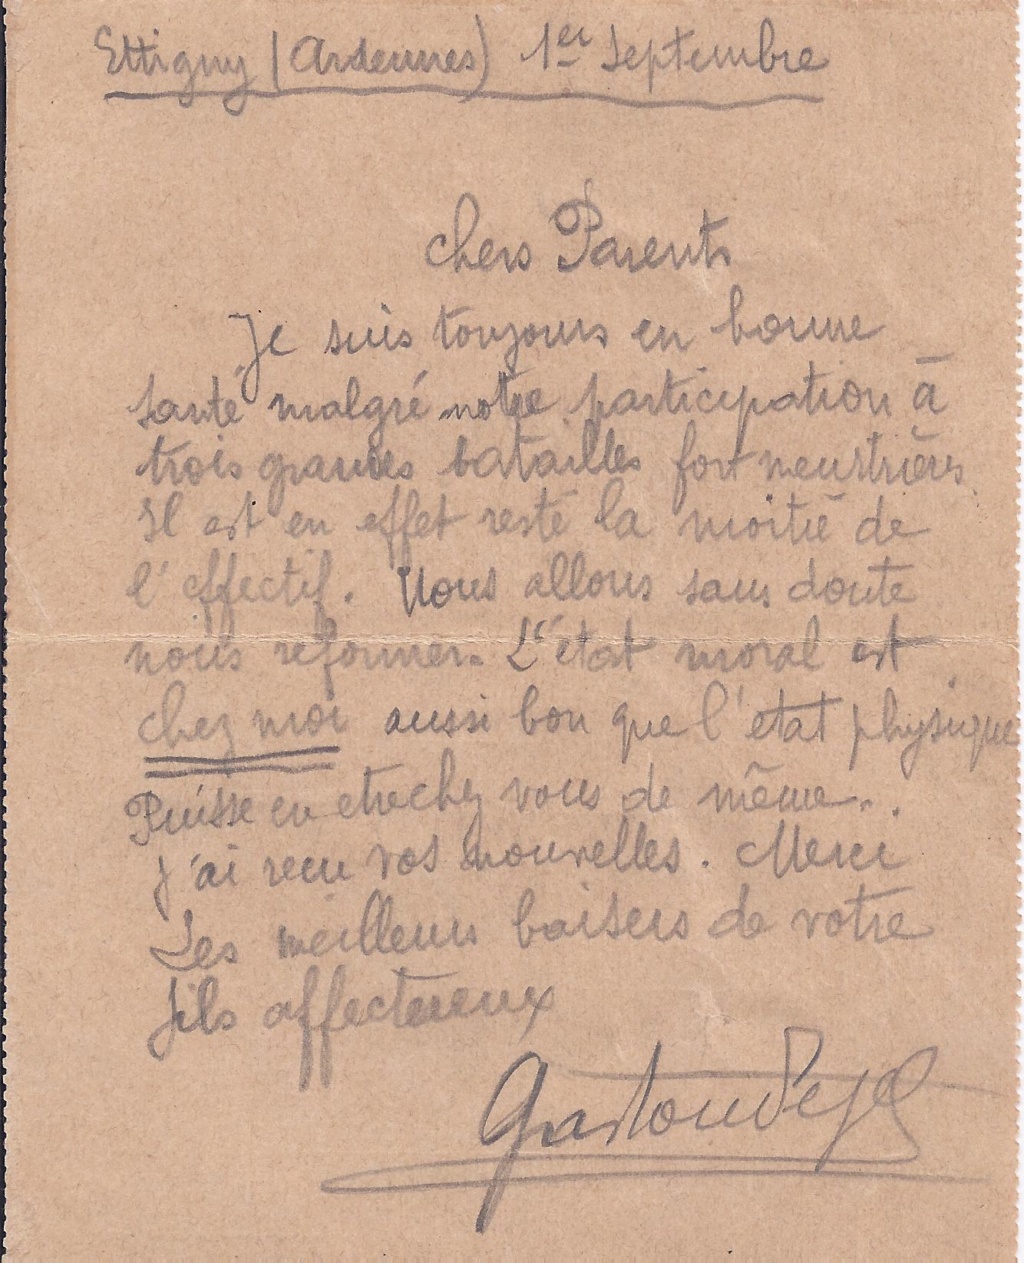 Ettigny (Ardennes) 1er Septembre
Chers Parents
Je suis toujours en bonne
santé malgré notre participation à
trois grandes batailles fort meurtrières.
Il est en effet resté la moitié de
l'effectif. Nous allons sans doute
nous reformer. L'état moral est
chez moi aussi bon que l'état physique
Puisse en etre chez vous de même..
J'ai recu vos nouvelles. Merci
Les meilleurs baisers de votre
fils affectueux
Gaston